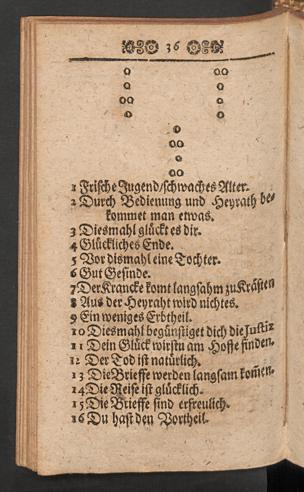 36
1 Frische Jugend/schwaches Alter.
2 Durch Bedienung und Heyrath be-
kommet man etwas.
3 Diesmahl glückt es dir.
4 Glückliches Ende.
5 Vor dismahl eine Tochter.
6 Gut Gesinde.
7 Der Krancke komt langsahm zu Kräften
8 Aus der Heyraht wird nichtes.
9 Ein weniges Erbtheil.
10 Diesmahl begünstiget dich die Justitz
11 Dein Glück wirstu am Hoffe finden.
12 Der Tod ist natürlich.
13 Die Brieffe werden langsam kom̃en.
14 Die Reise ist glücklich.
15 Die Brieffe sind erfreulich.
16 Du hast den Vortheil.